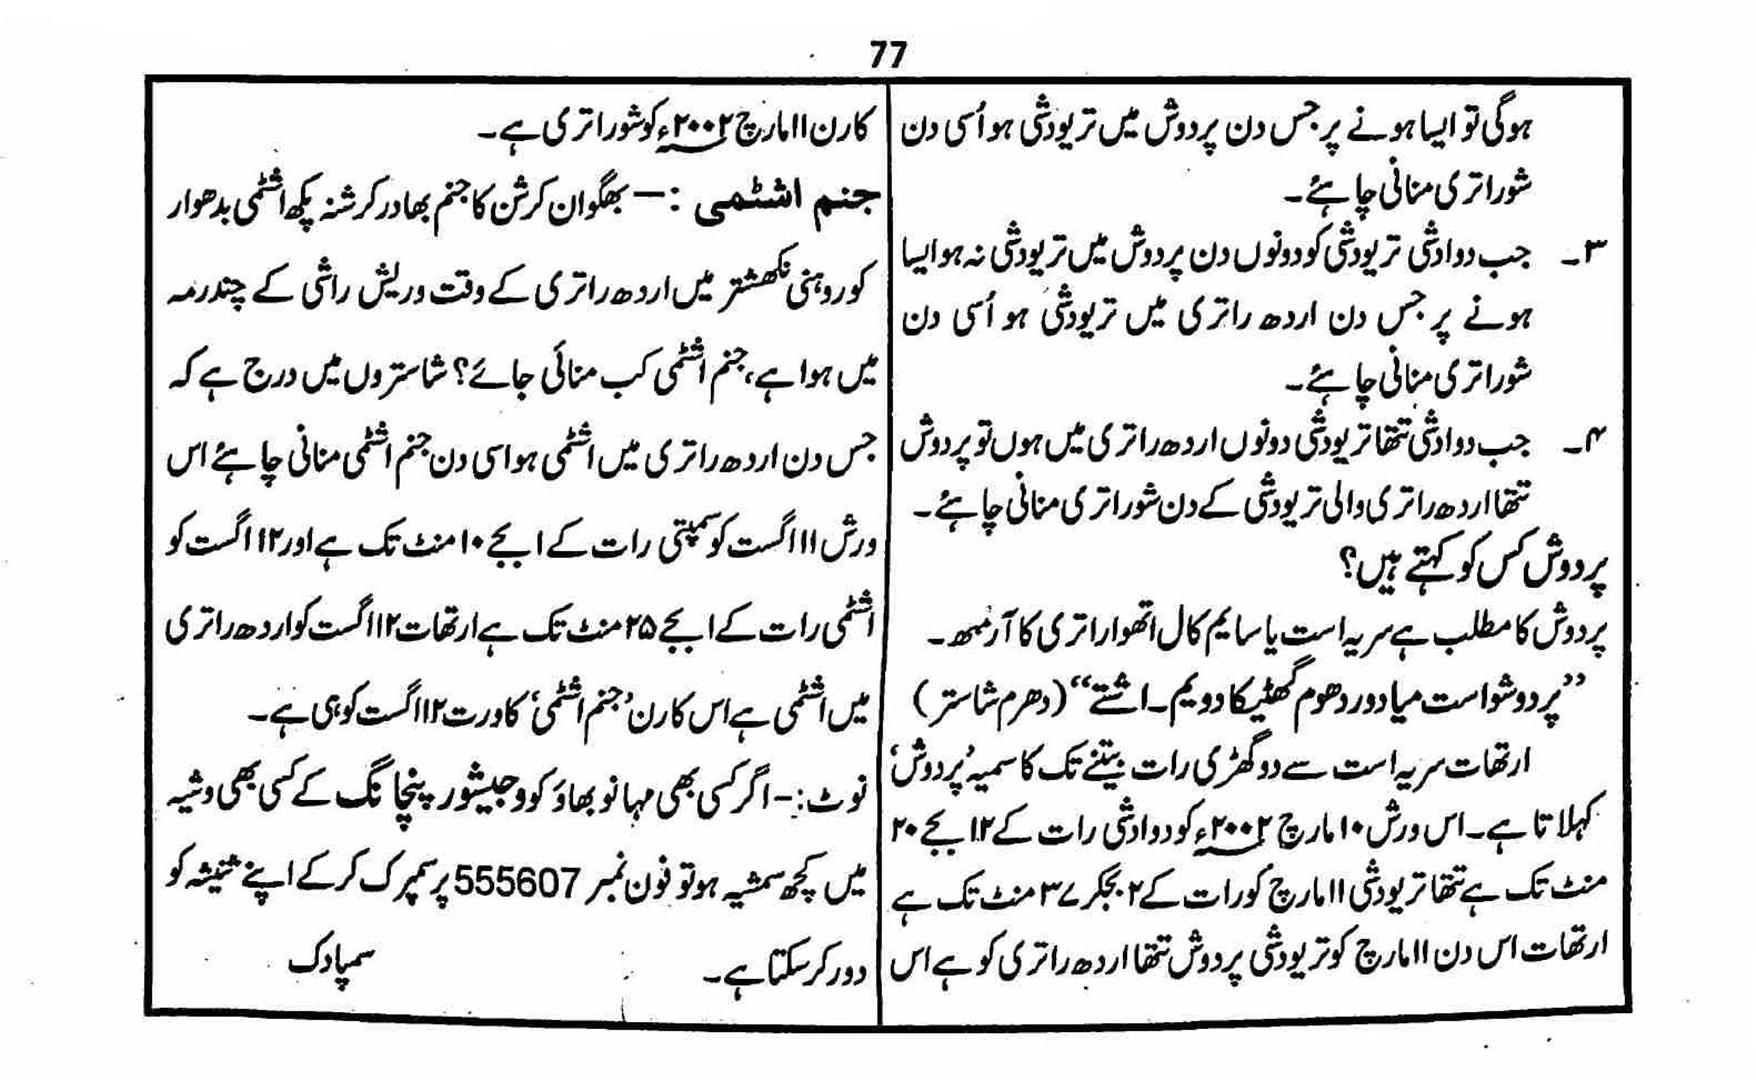 77
ہوگی تو ایسا ہونے پر جس دن پردوش میں تریودشی ہو اُسی دن
شوراتری منانی چاہئے۔
۳۔ جب دوادشی تریودشی کو دونوں دن پردوش میں تریودشی نہ ہو ایسا
ہونے پر جس دن اردھ راتری میں تریودشی ہو اُسی دن
شوراتری منانی چاہئے۔
۴۔ جب دوادشی تتھا تریودشی دونوں اردھ راتری میں ہوں تو پردوش
تتھا اردھ راتری والی تریودشی کے دن شوراتری منانی چاہئے۔
پردوش کس کو کہتے ہیں؟
پردوش کا مطلب ہے سریہ است یا سایم کال اتھوا راتری کا آرمبھ۔
”پردوشواست میادوردھوم گھٹیکا دویم۔اشتے“ (دھرم شاستر)
ارتھات سریہ است سے دو گھڑی رات بیتنے تک کا سمیہ ’پردوش‘
کہلاتا ہے۔ اس ورش ۱۰ مارچ ۲۰۰۲ء کو دوادشی رات کے ۱۲ بجے ۲۰
منٹ تک ہے تتھا تریودشی ۱۱ مارچ کو رات کے ۲ بجکر ۳۷ منٹ تک ہے
ارتھات اس دن ۱۱ مارچ کو تریودشی پردوش تتھا اردھ راتری کو ہے اس
کارن ۱۱ مارچ ۲۰۰۲ء کو شوراتری ہے۔
جنم اشٹمی :— بھگوان کرشن کا جنم بھادر کرشنہ پکھ اشٹمی بدھوار
کو روہنی نکھشتر میں اردھ راتری کے وقت وریش راشی کے چندرمہ
میں ہوا ہے، جنم اشٹمی کب منائی جائے؟ شاستروں میں درج ہے کہ
جس دن اردھ راتری میں اشٹمی ہو اسی دن جنم اشٹمی منانی چاہئے اس
ورش ۱۱ اگست کو سمپتی رات کے ۱ بجے ۱۰ منٹ تک ہے اور ۱۲ اگست کو
اشٹمی رات کے ۱ بجے ۲۵ منٹ تک ہے ارتھات ۱۲ اگست کو اردھ راتری
میں اشٹمی ہے اس کارن ’جنم اشٹمی‘ کا ورت ۱۲ اگست کو ہی ہے۔
نوٹ:- اگر کسی بھی مہانوبھاؤ کو وجیشور پنچانگ کے کسی بھی وشیہ
میں کچھ سمشیہ ہو تو فون نمبر 555607 پر سمپرک کرکے اپنے شنیشہ کو
دور کر سکتا ہے۔ سمپادک